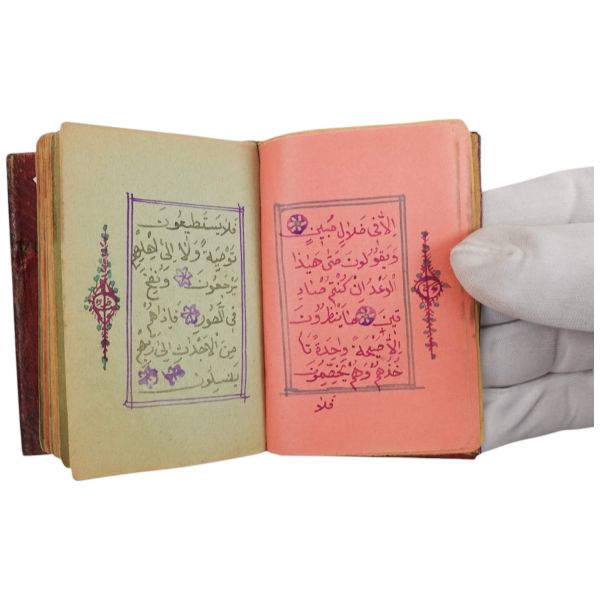 الا فى ضلالٍ مبينٍ
ويقولون متى هذا
الوعد ان كنتم صاد
قين ماينظرون
الا صيحة وحدة تا
خذهم وهم يخصمون
فلا
فلا يستطيعون
توصية ولا إلى اهلهم
يرجعون ونفخ
فى الصور فاذاهم
من الاجداث الى ربهم
ينسلون